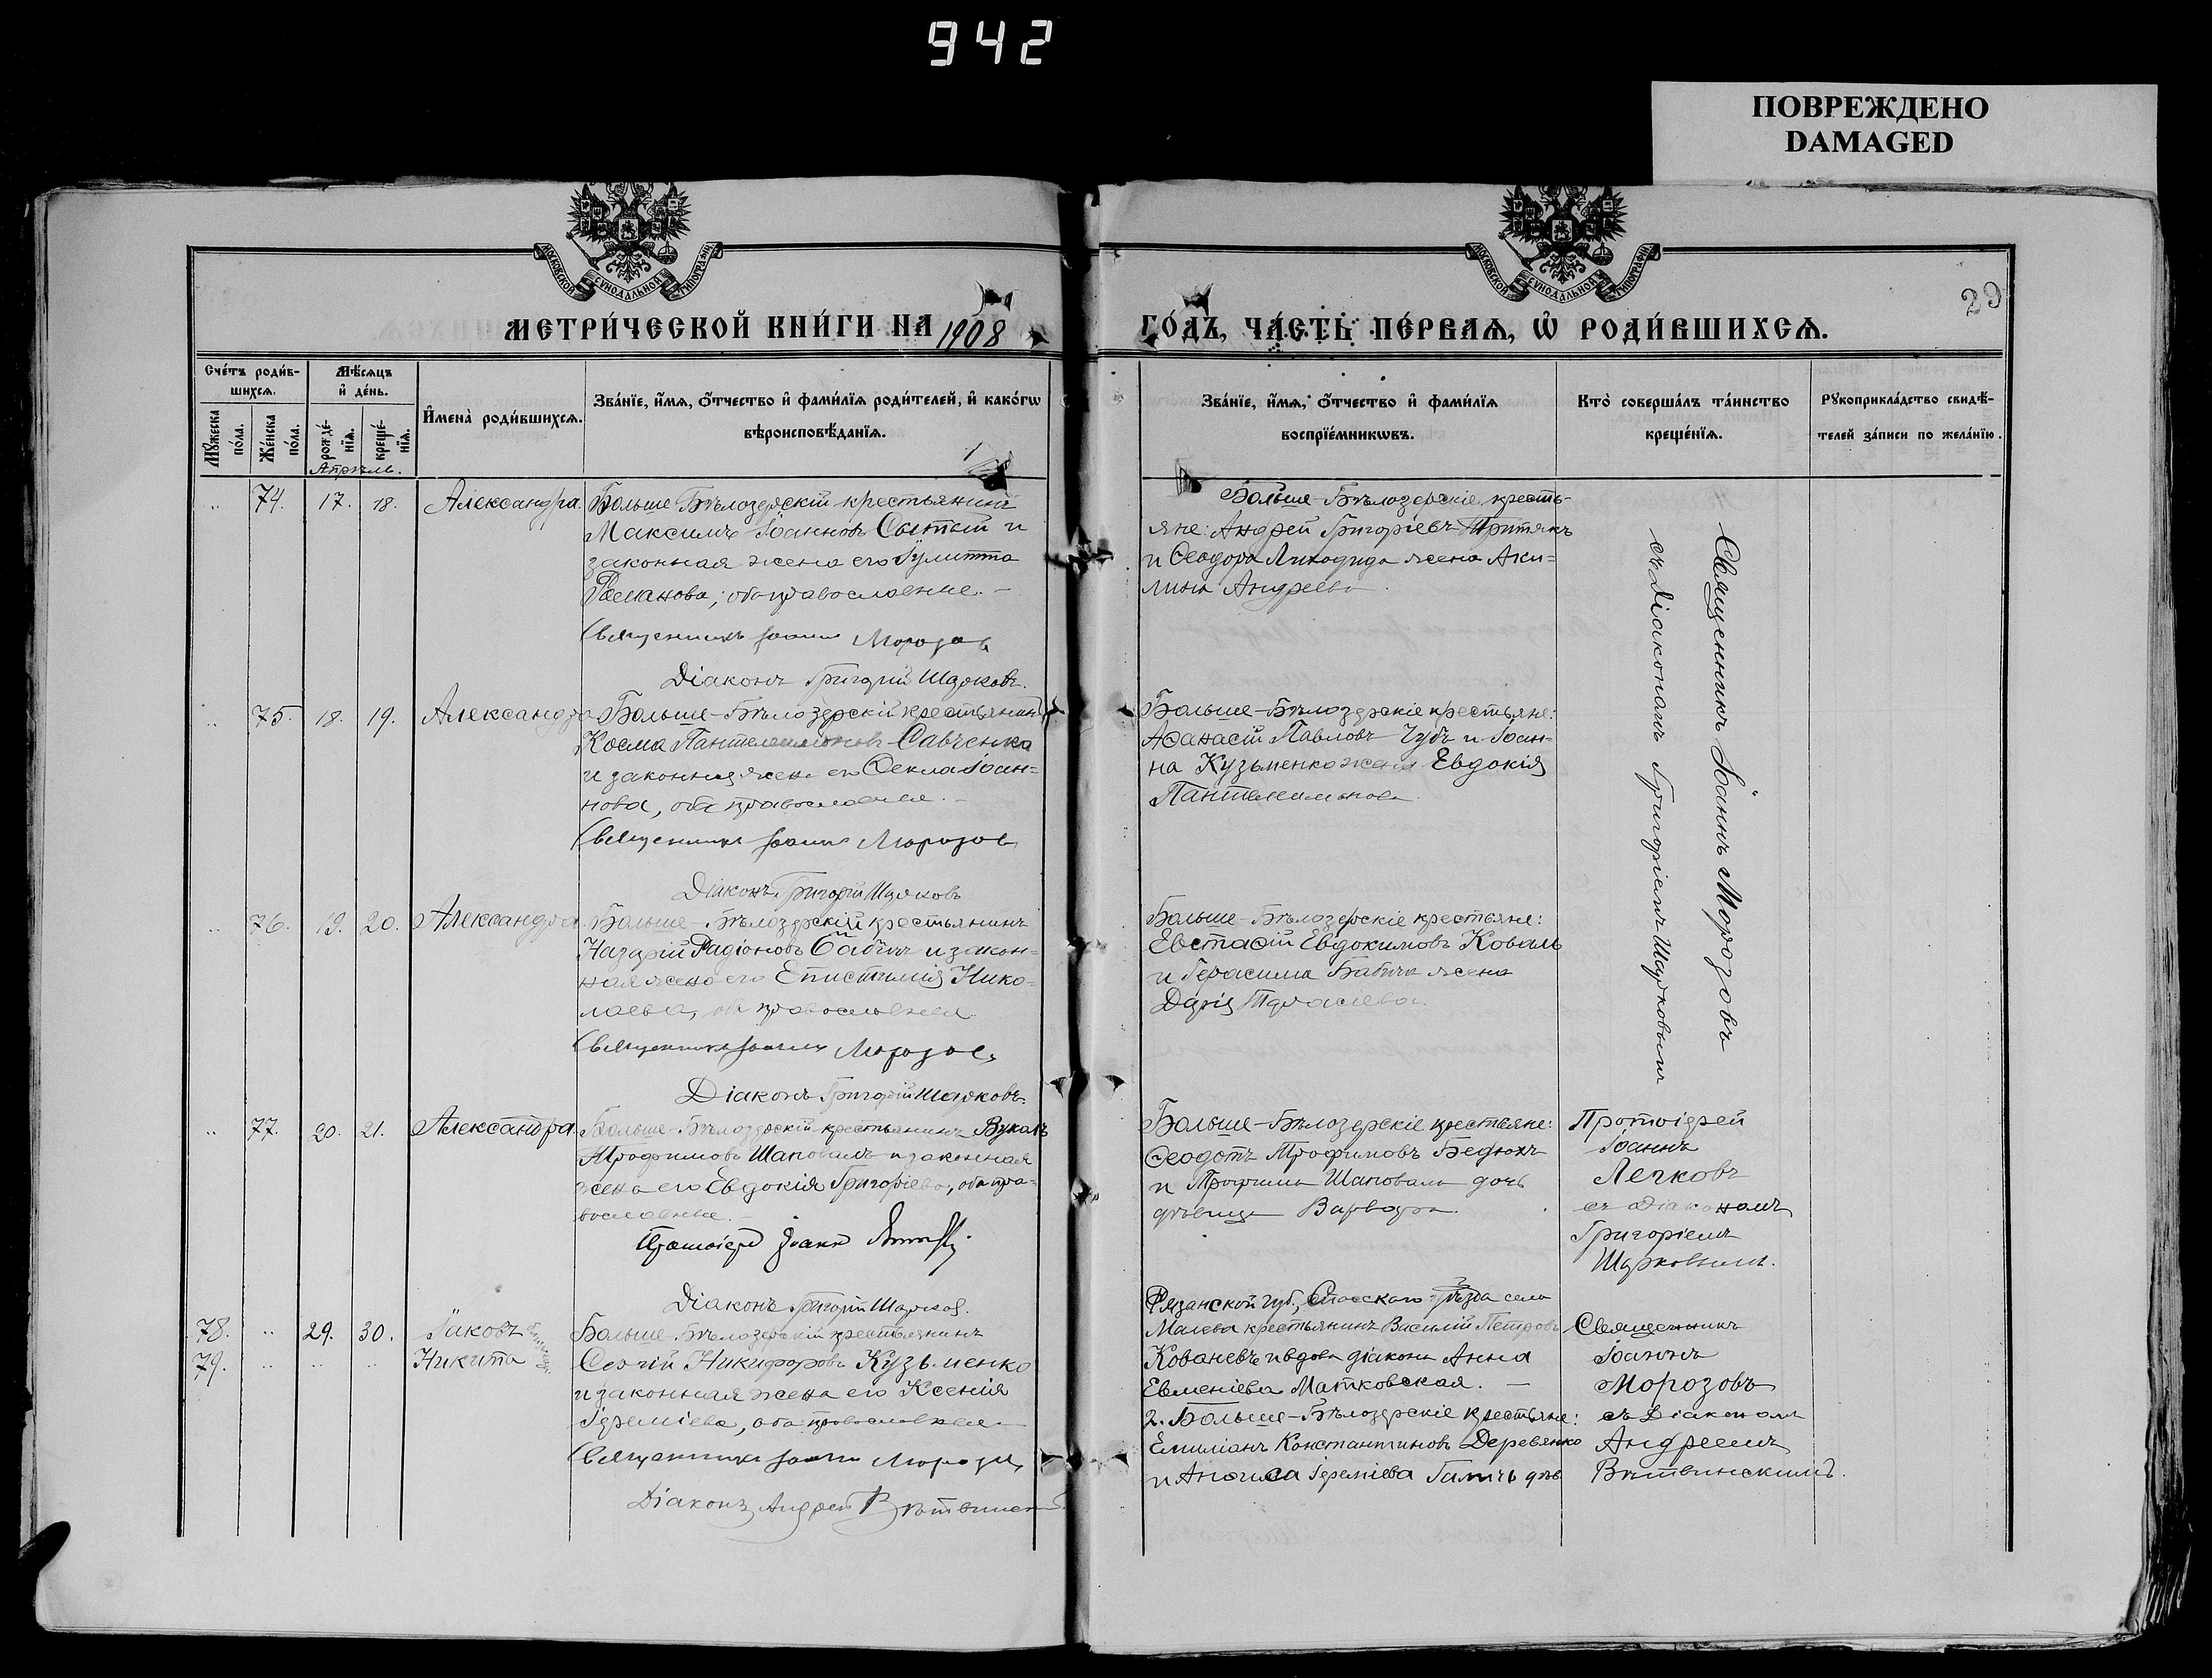 942
ПОВРЕЖДЕНО
DAMAGED
МОСКОВСКОЙ СѴНОДАЛЬНОЙ ТИПОГРАФІИ
МОСКОВСКОЙ СѴНОДАЛЬНОЙ ТИПОГРАФІИ
29
МЕТРИ́ЧЕСКОЙ КНИ́ГИ НА 1908
ГО́ДЪ, ЧА́СТЬ ПЕ́РВАѦ, Ѽ РОДИ́ВШИХСѦ.
Сче́тъ роди́в-
шихсѧ.
Мѣ́сѧцъ
и҆ де́нь.
Мꙋ́жеска
по́ла.
Же́нска
по́ла.
рожде́-
нїѧ.
креще́-
нїѧ.
И҆мена̀ роди́вшихсѧ.
Зва́нїе, и҆́мѧ, ѻ҆́тчество и҆ фами́лїѧ роди́телей, и҆ како́гѡ
вѣроисповѣ́данїѧ.
Зва́нїе, и҆́мѧ, ѻ҆́тчество и҆ фами́лїѧ
воспрїе́мникѡвъ.
Кто̀ соверша́лъ та́инство
креще́нїѧ.
Рꙋкоприкла́дство свидѣ́-
телей за́писи по жела́нїю.
Апрѣль.
" 74. 17. 18. Александра.
Больше-Бѣлозерскій крестьянинъ
Максимъ Іоанновъ Сытый и
законная жена его Іулитта
Романова; оба православные.
Священникъ Іоаннъ Морозов
Діаконъ Григорій Шарковъ.
Больше-Бѣлозерскіе кресть-
яне: Андрей Григоріевъ Притякъ
и Ѳеодора Лиходида жена Аки-
лина Андреева.
Священникъ Іоаннъ Морозовъ
съ діакономъ Григоріемъ Шарковымъ
" 75. 18. 19. Александра
Больше-Бѣлозерскій крестьянинъ
Косма Пантелеимоновъ Савченко
и законная жена его Ѳекла Іоан-
нова, оба православные.
Священникъ Іоаннъ Морозов
Діаконъ Григорій Шарковъ
Больше-Бѣлозерскіе крестьяне:
Аѳанасій Павловъ Чубъ и Іоан-
на Кузьменко жена Евдокія
Пантелеимонова.
" 76. 19. 20. Александра.
Больше-Бѣлозерскій крестьянинъ
Назарій Радіоновъ Бабичъ и закон-
ная жена его Епистимія Нико-
лаева, оба православные.
Священникъ Іоаннъ Морозов
Діаконъ Григорій Шарковъ.
Больше-Бѣлозерскіе крестьяне:
Евстафій Евдокимовъ Коваль
и Герасима Бабича жена
Дарія Тарасіева.
" 77. 20. 21. Александра.
Больше-Бѣлозерскій крестьянинъ Вуколъ
Трофимовъ Шаповалъ и законная
жена его Евдокія Григоріева, оба пра-
вославные.
Протоіерей Іоаннъ
Діаконъ Григорій Шарков.
Больше-Бѣлозерскіе крестьяне:
Ѳеодотъ Трофимовъ Бедюхъ
и Трофима Шаповала дочь
дѣвица Варвара.
Протоіерей
Іоаннъ
Легковъ
съ діакономъ
Григоріемъ
Шарковымъ.
78. " 29. 30. Іаковъ
79. " " " Никита
Больше-Бѣлозерскій крестьянинъ
Сергій Никифоровъ Кузьменко
и законная жена его Ксенія
Іереміева, оба православные
Священникъ Іоаннъ Морозов
Діаконъ Андрей Вѣтвинскій
Рязанской губ., Спасскаго уѣзда села
крестьянинъ Василій Петровъ
Кованевъ и вдова діакона Анна
Евменіева Матковская. —
2. Больше-Бѣлозерскіе крестьяне:
Емиліанъ Константиновъ Деревянко
и Анѳиса Іереміева дѣв.
Священникъ
Іоаннъ
Морозовъ
съ Діакономъ
Андреемъ
Вѣтвинскимъ.